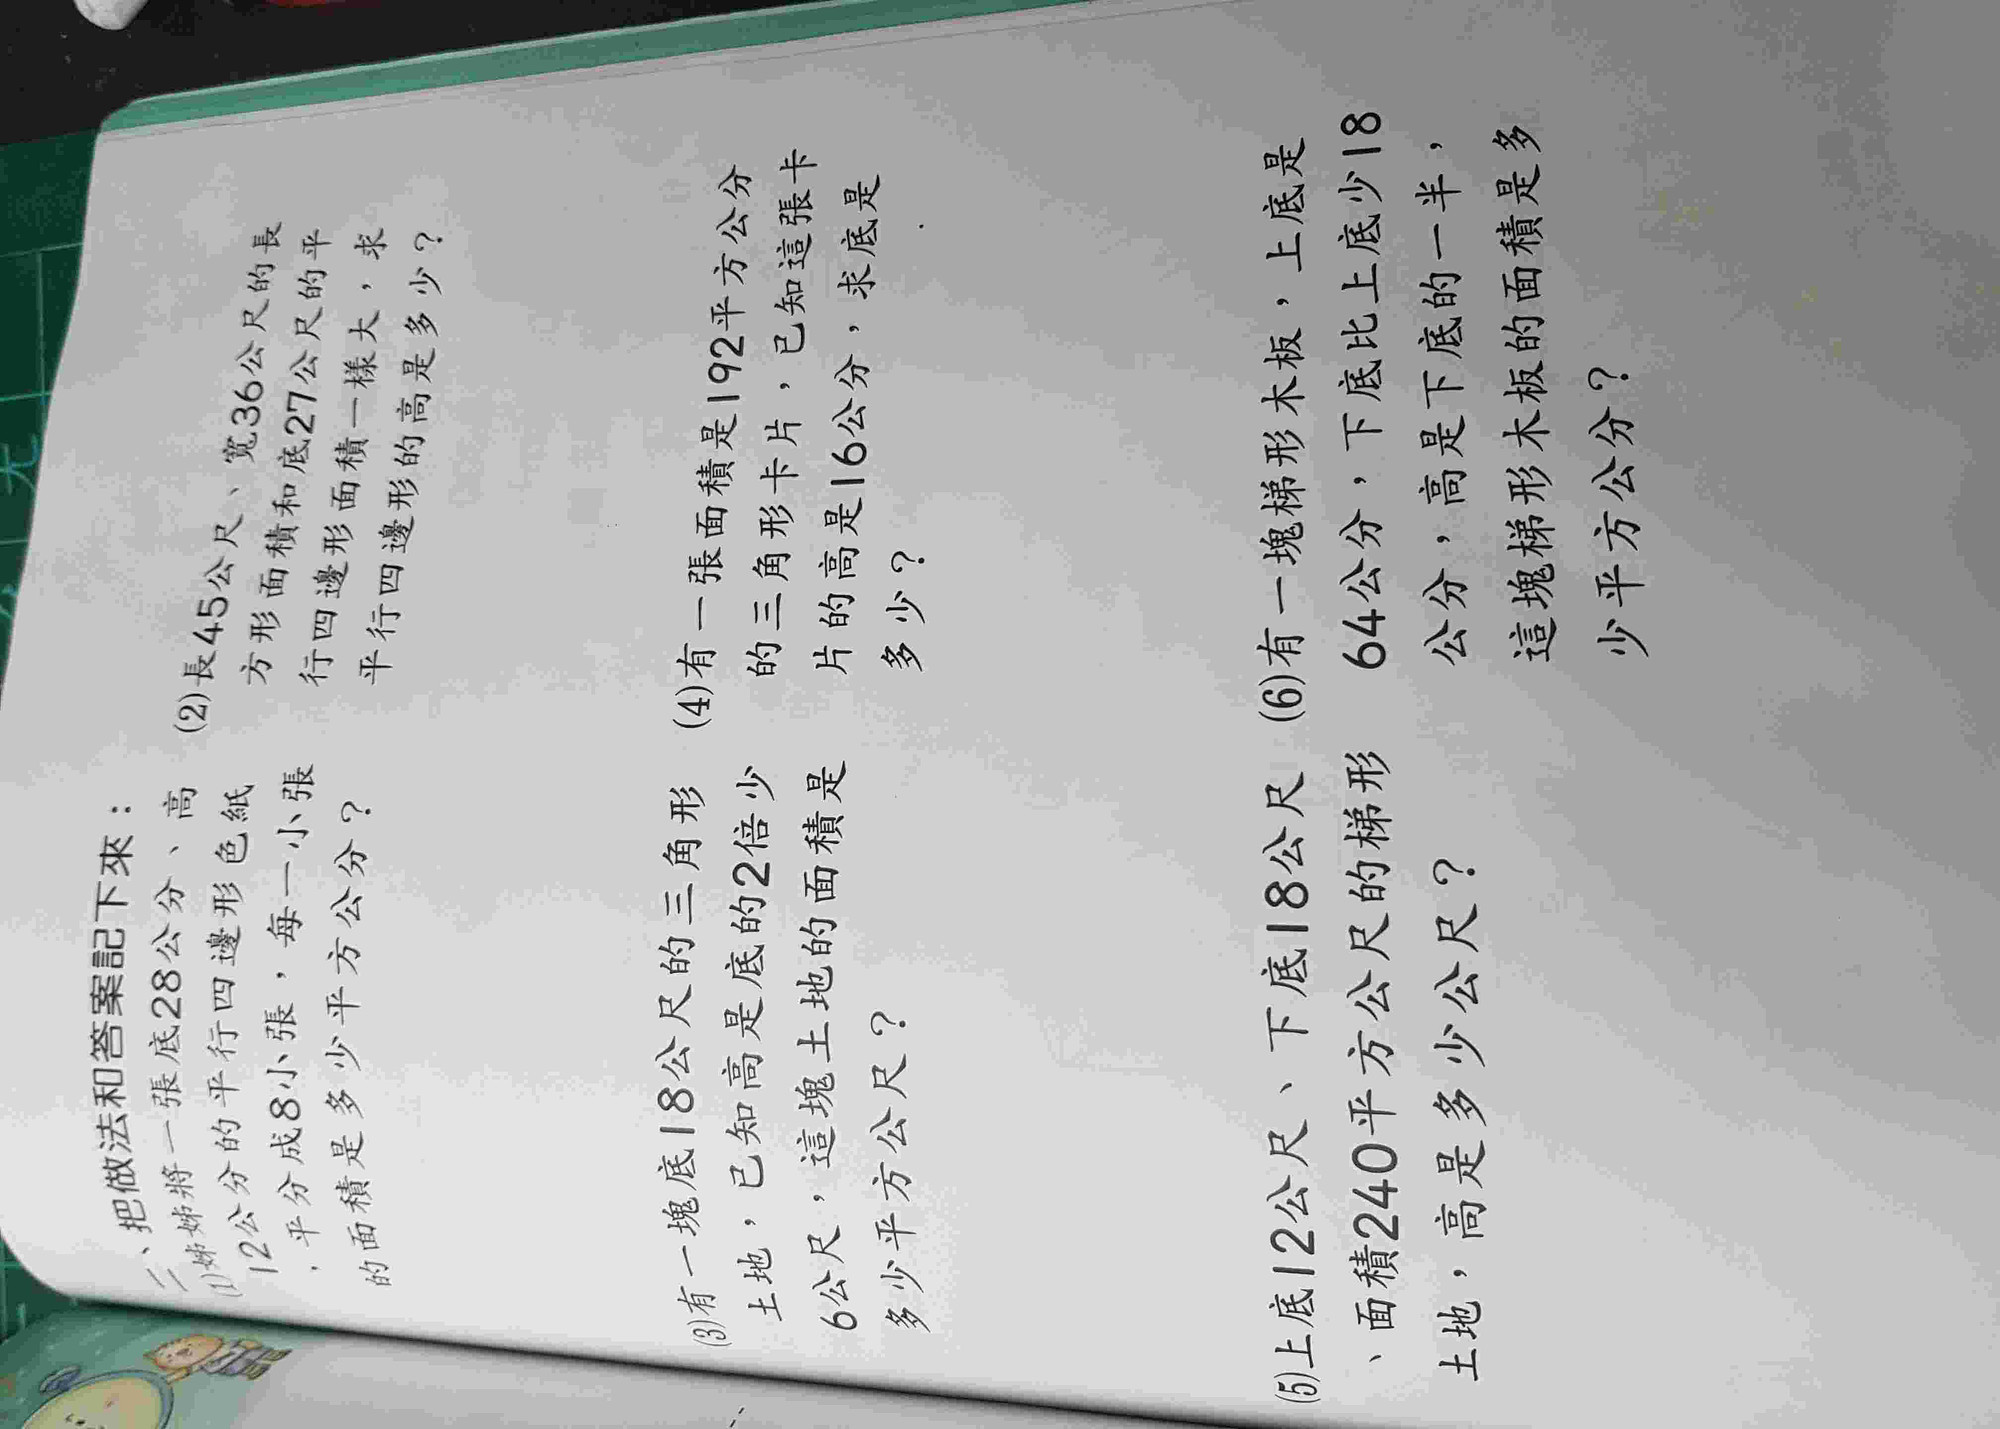 二、把做法和答案記下來：
(1)姊姊將一張底28公分、高
12公分的平行四邊形色紙
，平分成8小張，每一小張
的面積是多少平方公分？
(2)長45公尺、寬36公尺的長
方形面積和底27公尺的平
行四邊形面積一樣大，求
平行四邊形的高是多少？
(3)有一塊底18公尺的三角形
土地，已知高是底的2倍少
6公尺，這塊土地的面積是
多少平方公尺？
(4)有一張面積是192平方公分
的三角形卡片，已知這張卡
片的高是16公分，求底是
多少？
(5)上底12公尺、下底18公尺
、面積240平方公尺的梯形
土地，高是多少公尺？
(6)有一塊梯形木板，上底是
64公分，下底比上底少18
公分，高是下底的一半，
這塊梯形木板的面積是多
少平方公分？